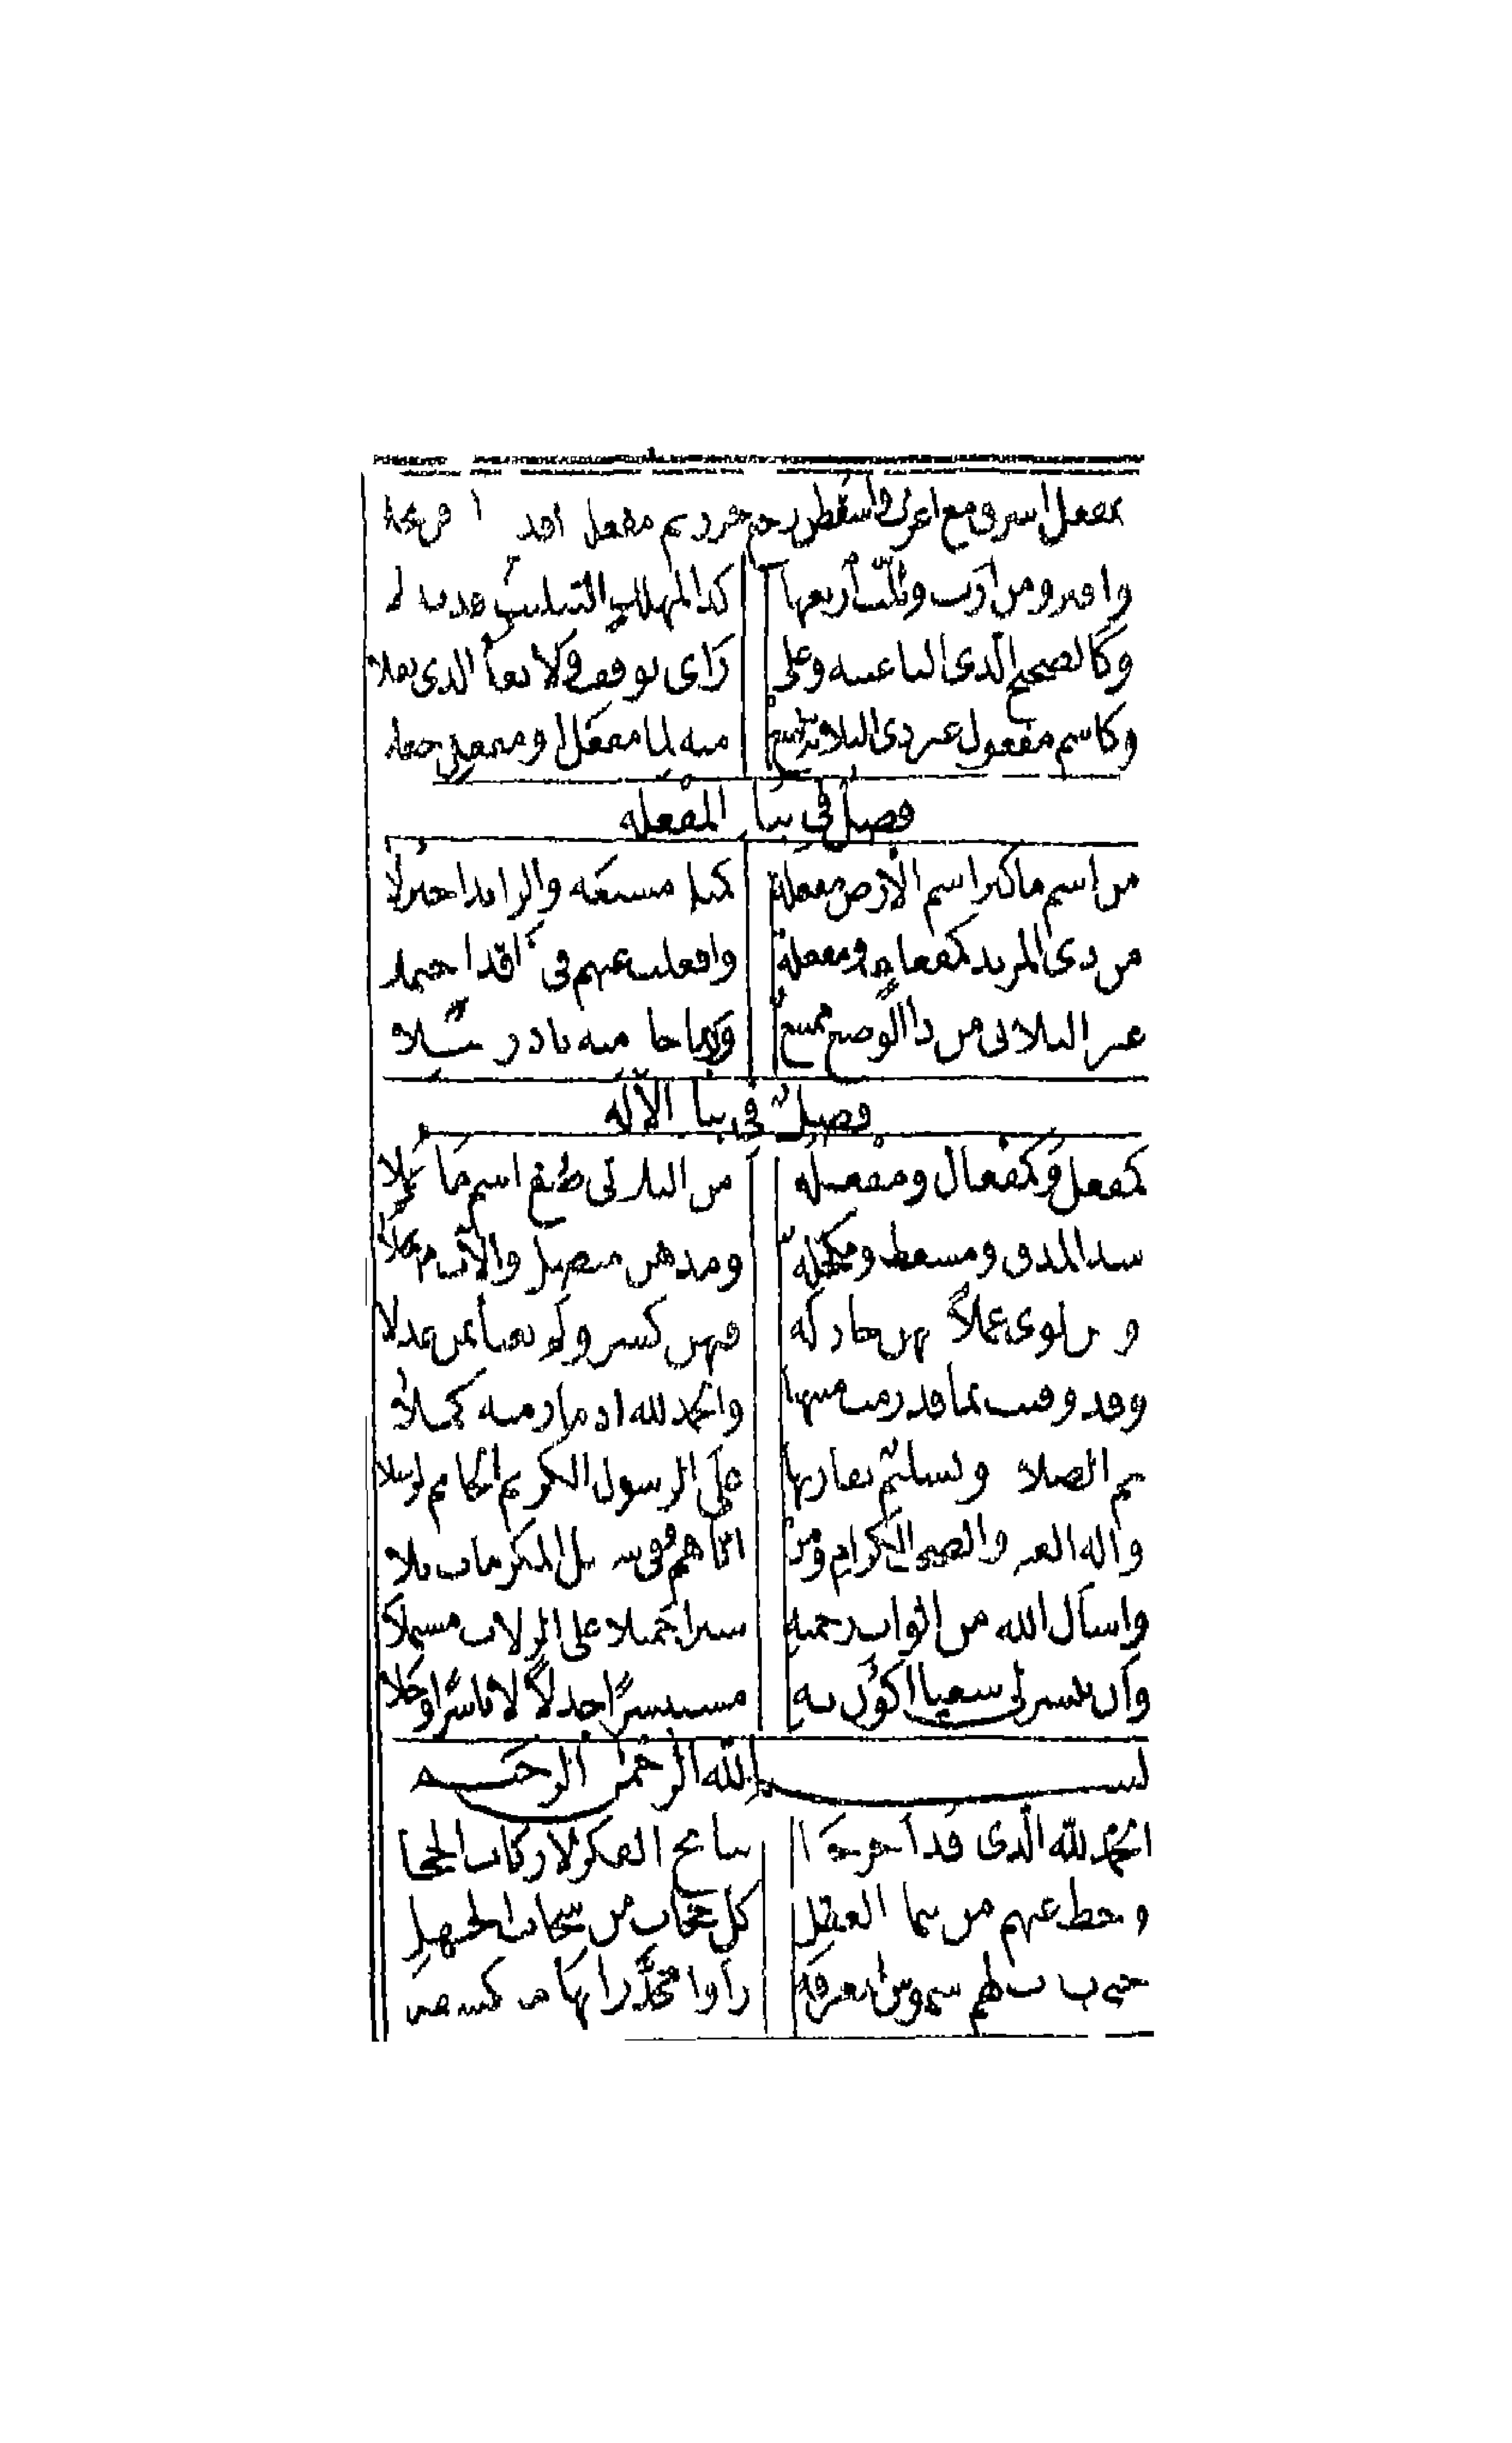 بمفعل اشرق مع اغرب واسقطن رجع اجزر ثم مفعل اقدر
واقبر ومن أرب وثلث أربعها كذا لمهلك التثليث قد بذلا
وكالصحيح الذي اليا عينه وعلى رأي توقف ولا تعد الذي نقلا
وكاسم مفعول غير ذي الثلاثة صغ منه لما مفعل ومفعل جعلا
فصل في بنا المفعله
من اسم ما كثر اسم الأرض مفعلة كمثل مسبعة والزائد اختزلا
من ذي المزيد كمفعاة ومفعلة وافعلت عنهم في ذا قد احتملا
غير الثلاثي من ذا الوضع ممتنع وربما جا منه نادر
فصل في بنا الآله
كمفعل وكمفعال ومفعله من الثلاثي صغ اسم ما به عملا
شذ المدق ومسعط ومكحلة ومدهن منصل والآت من نخلا
ومن نوى عملاً بهن جاز له فيهن كسر ولم يعبأ بمن عذلا
وقد وفيت بما قد رمت منتهيا والحمد لله اذ ما رمته كملا
ثم الصلاة وتسليم يقارنها على الرسول الكريم الخاتم الرسلا
وآله الغر والصحب الكرام ومن اياهم في سبيل المكرمات تلا
واسأل الله من اثواب رحمته سترا جميلا على الزلات مشتملا
وأن ييسر لي سعيا اكون به مستبشرًا جذلًا لا باسرًا وجلا
بسم الله الرحمن الرحيم
الحمد لله الذي قد أخرجا نتائج الفكر لارباب الحجا
وحط عنهم من سما العقل كل حجاب من سحاب الجهل
حتى بدت لهم شموس المعرفه رأوا مخدراتها منكشفه